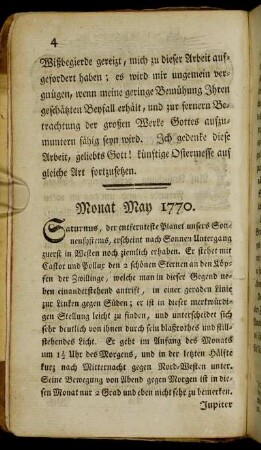 4
Wißbegierde gereizt, mich zu dieser Arbeit auf-
gefordert haben; es wird mir ungemein ver-
gnügen, wenn meine geringe Bemühung Ihren
geschätzten Beyfall erhält, und zur fernern Be-
trachtung der großen Werke Gottes aufzu-
muntern fähig seyn wird. Ich gedenke diese
Arbeit, geliebts Gott! künftige Ostermesse auf
gleiche Art fortzusetzen.
Monat May 1770.
Saturnus, der entfernteste Planet unsers Son-
nensystems, erscheint nach Sonnen Untergang
zuerst in Westen noch ziemlich erhaben. Er stehet mit
Castor und Pollux den 2 schönen Sternen an den Köp-
fen der Zwillinge, welche man in dieser Gegend ne-
ben einander stehend antrift, in einer geraden Linie
zur Linken gegen Süden; er ist in dieser merkwürdi-
gen Stellung leicht zu finden, und unterscheidet sich
sehr deutlich von ihnen durch sein blaßrothes und still-
stehendes Licht. Er geht im Anfang des Monats
um 1½ Uhr des Morgens, und in der letzten Hälfte
kurz nach Mitternacht gegen Nord-Westen unter.
Seine Bewegung von Abend gegen Morgen ist in die-
sen Monat nur 2 Grad und eben nicht sehr zu bemerken.
Jupiter